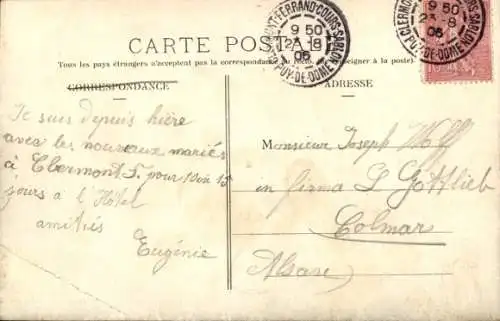 CARTE POSTA
Tous les pays étrangers n'acceptent pas la correspondance au
à la poste).
CORRESPONDANCE
ADRESSE
CLERMONT-FERRAND COURS-SABLON
9 50
23-8
05
PUY-DE-DOME
9 50
23-8
05
PUY-DE-DOME
Je suis depuis hière
avec les nouveaux mariés
à Clermont F. pour 10 où 15
jours à l'Hôtel
amitiés
Eugénie
Monsieur Joseph Wolf
in firma L Gottlieb
Colmar
Alsace